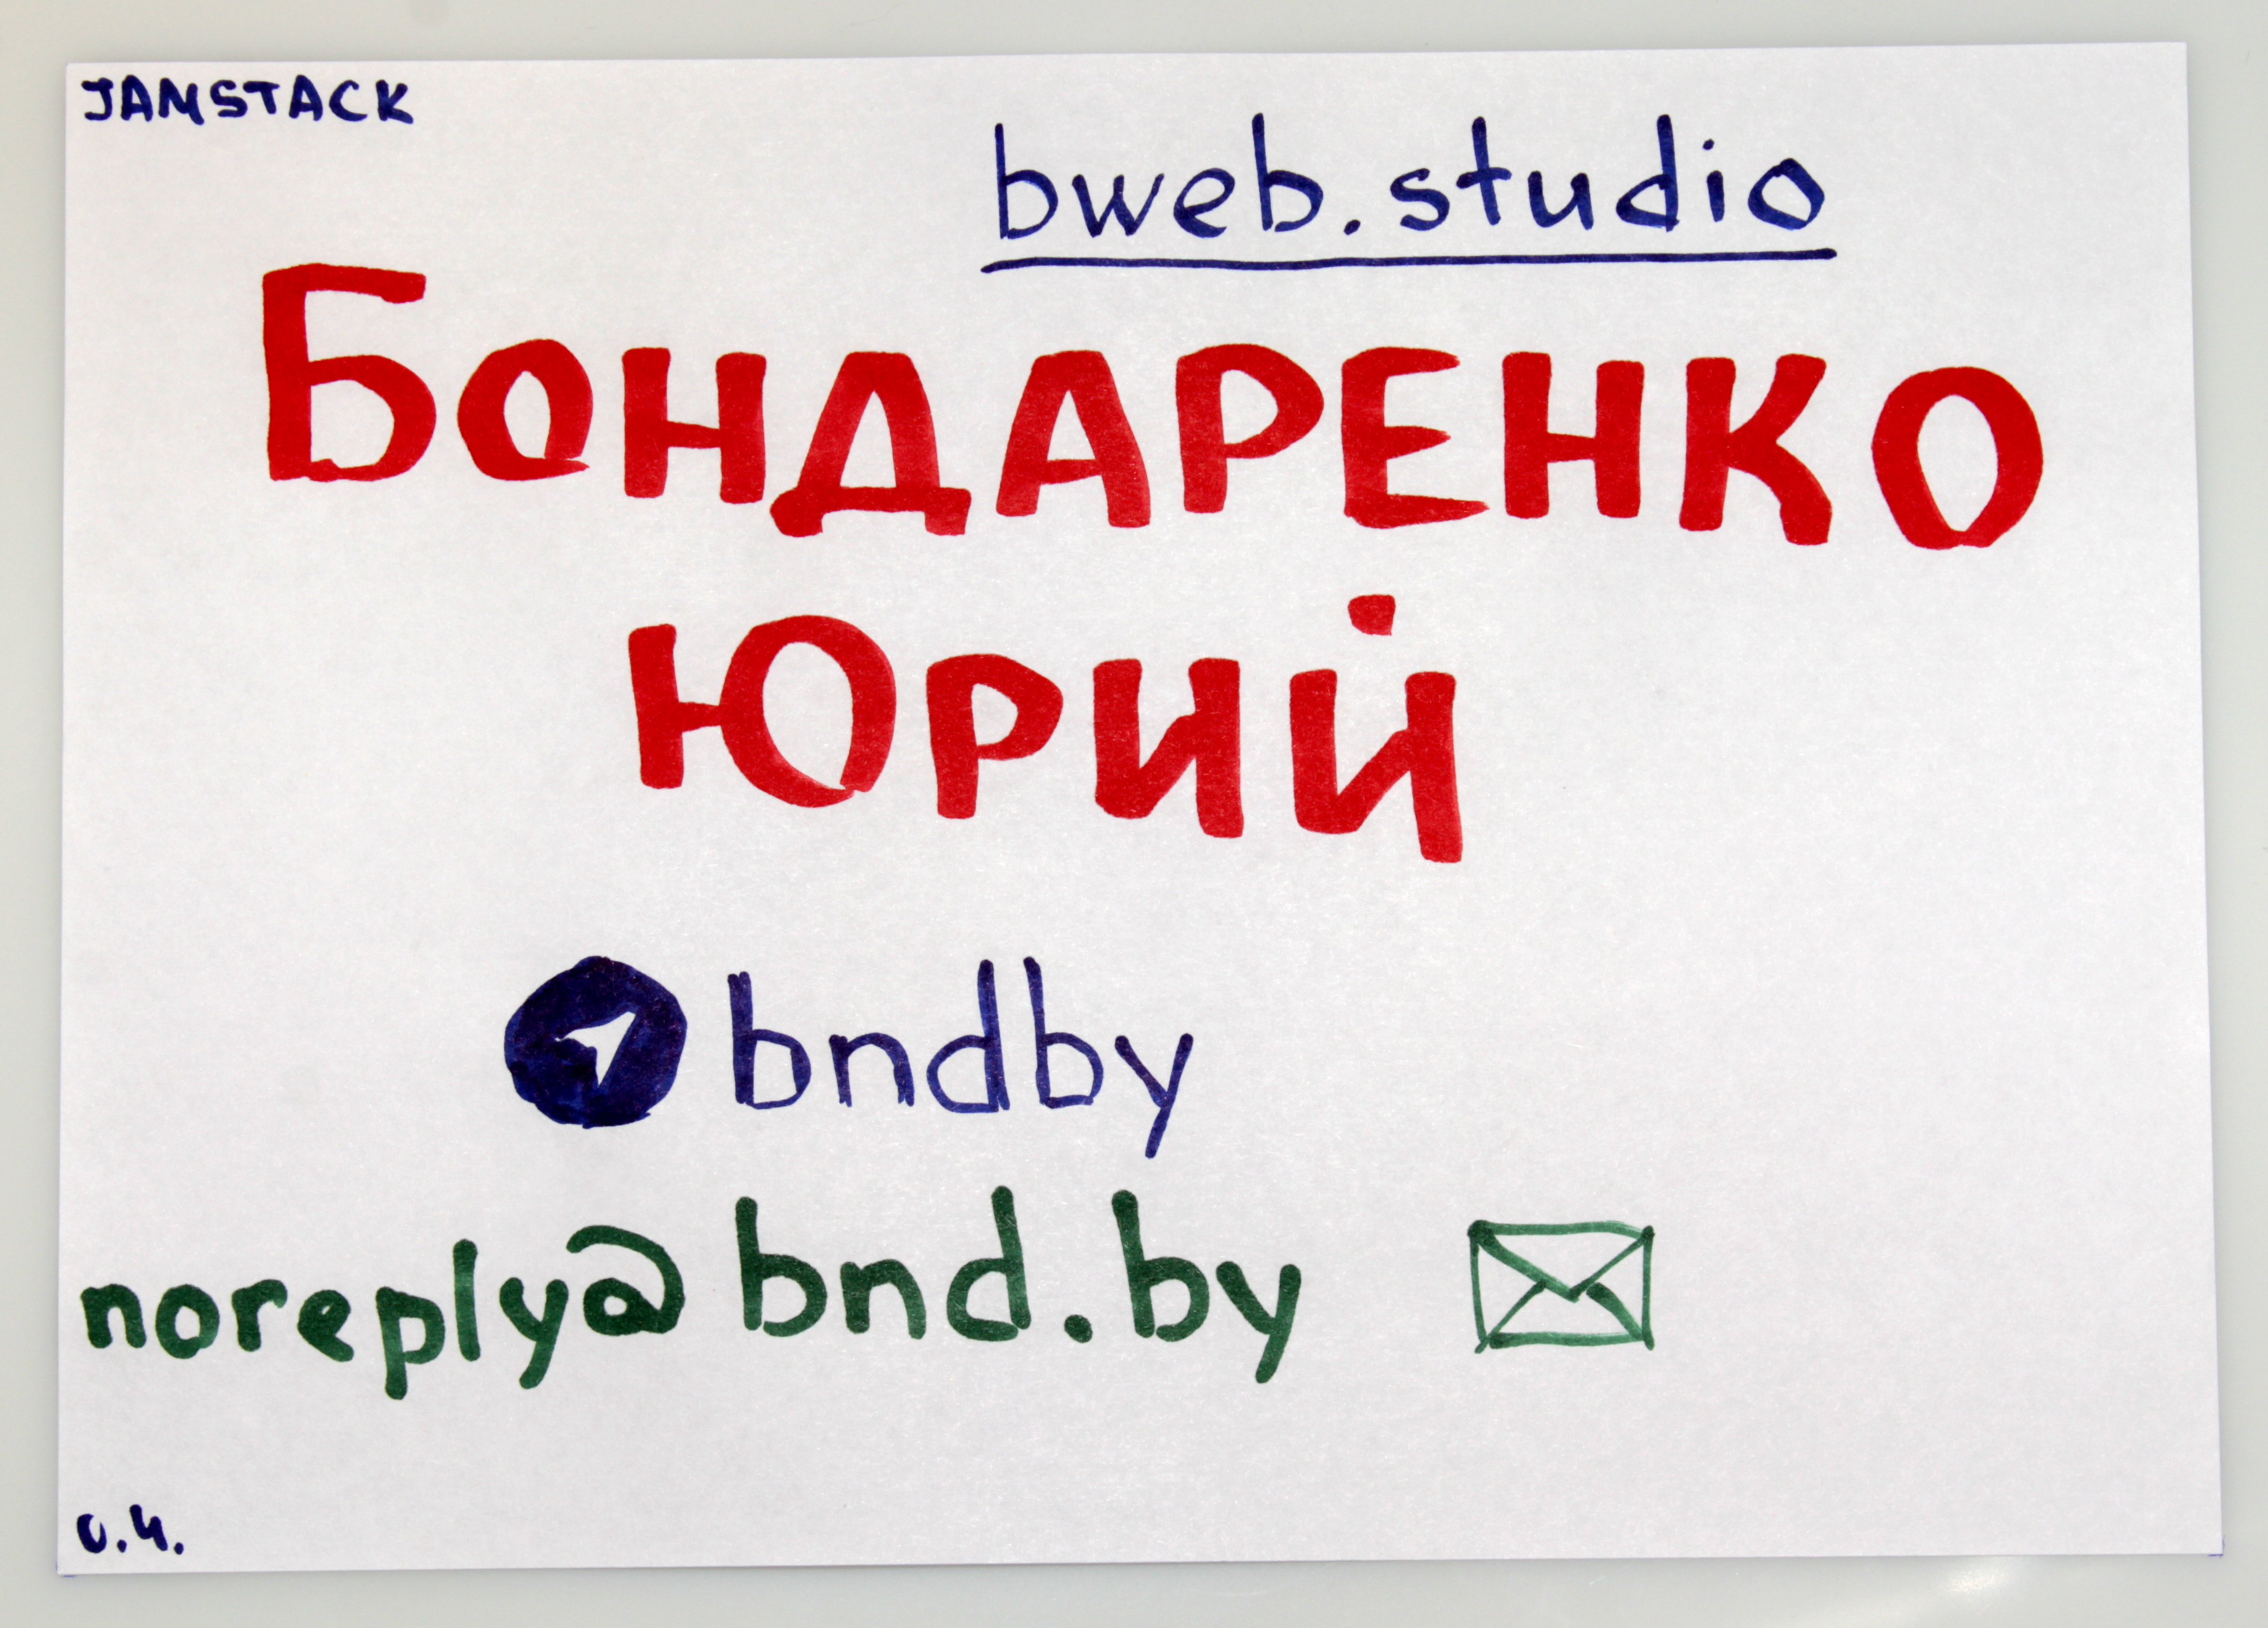 JAMSTACK
bweb.studio
БОНДАРЕНКО
ЮРИЙ
bndby
noreply@bnd.by
0.4.